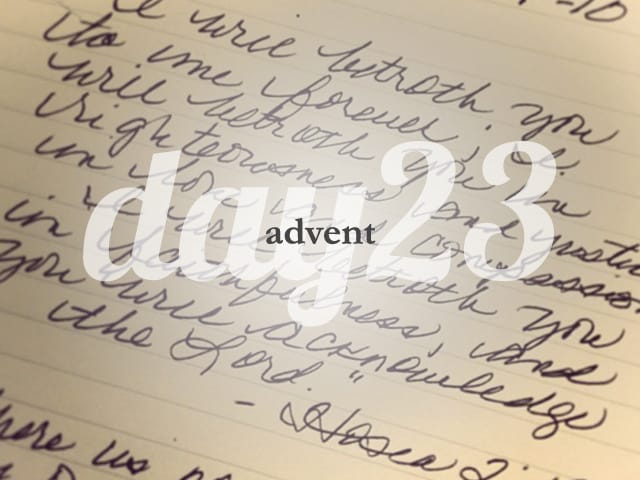 I will betroth you
to me forever; I
will betroth you in
righteousness and justice
in love and compassion.
I will betroth you
in faithfulness, and
you will acknowledge
the Lord."
- Hosea 2:
day 23
advent
there us